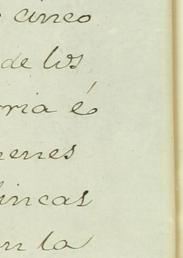 cinco
de los
oria é
enes
incas
en la